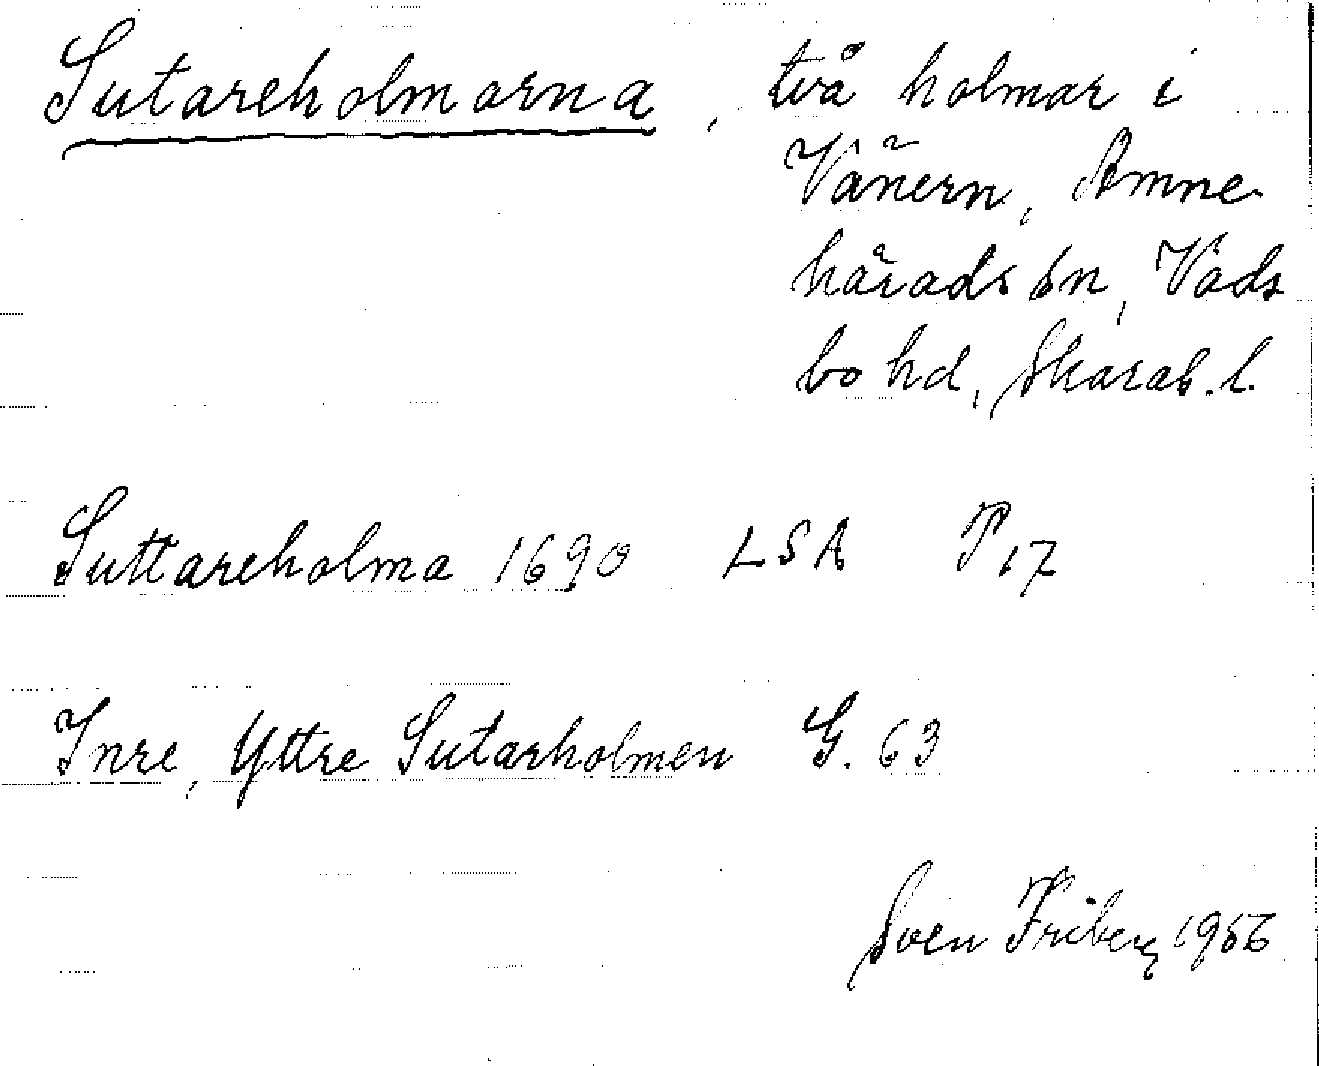 Sutareholmarna, två holmar i
Vänern, Amne
härads sn, Vads
bo hd, Skarab. l.
Suttareholma 1690 LSA P 17
Inre, Yttre Sutarholmen G. 63
Sven Friberg 1956